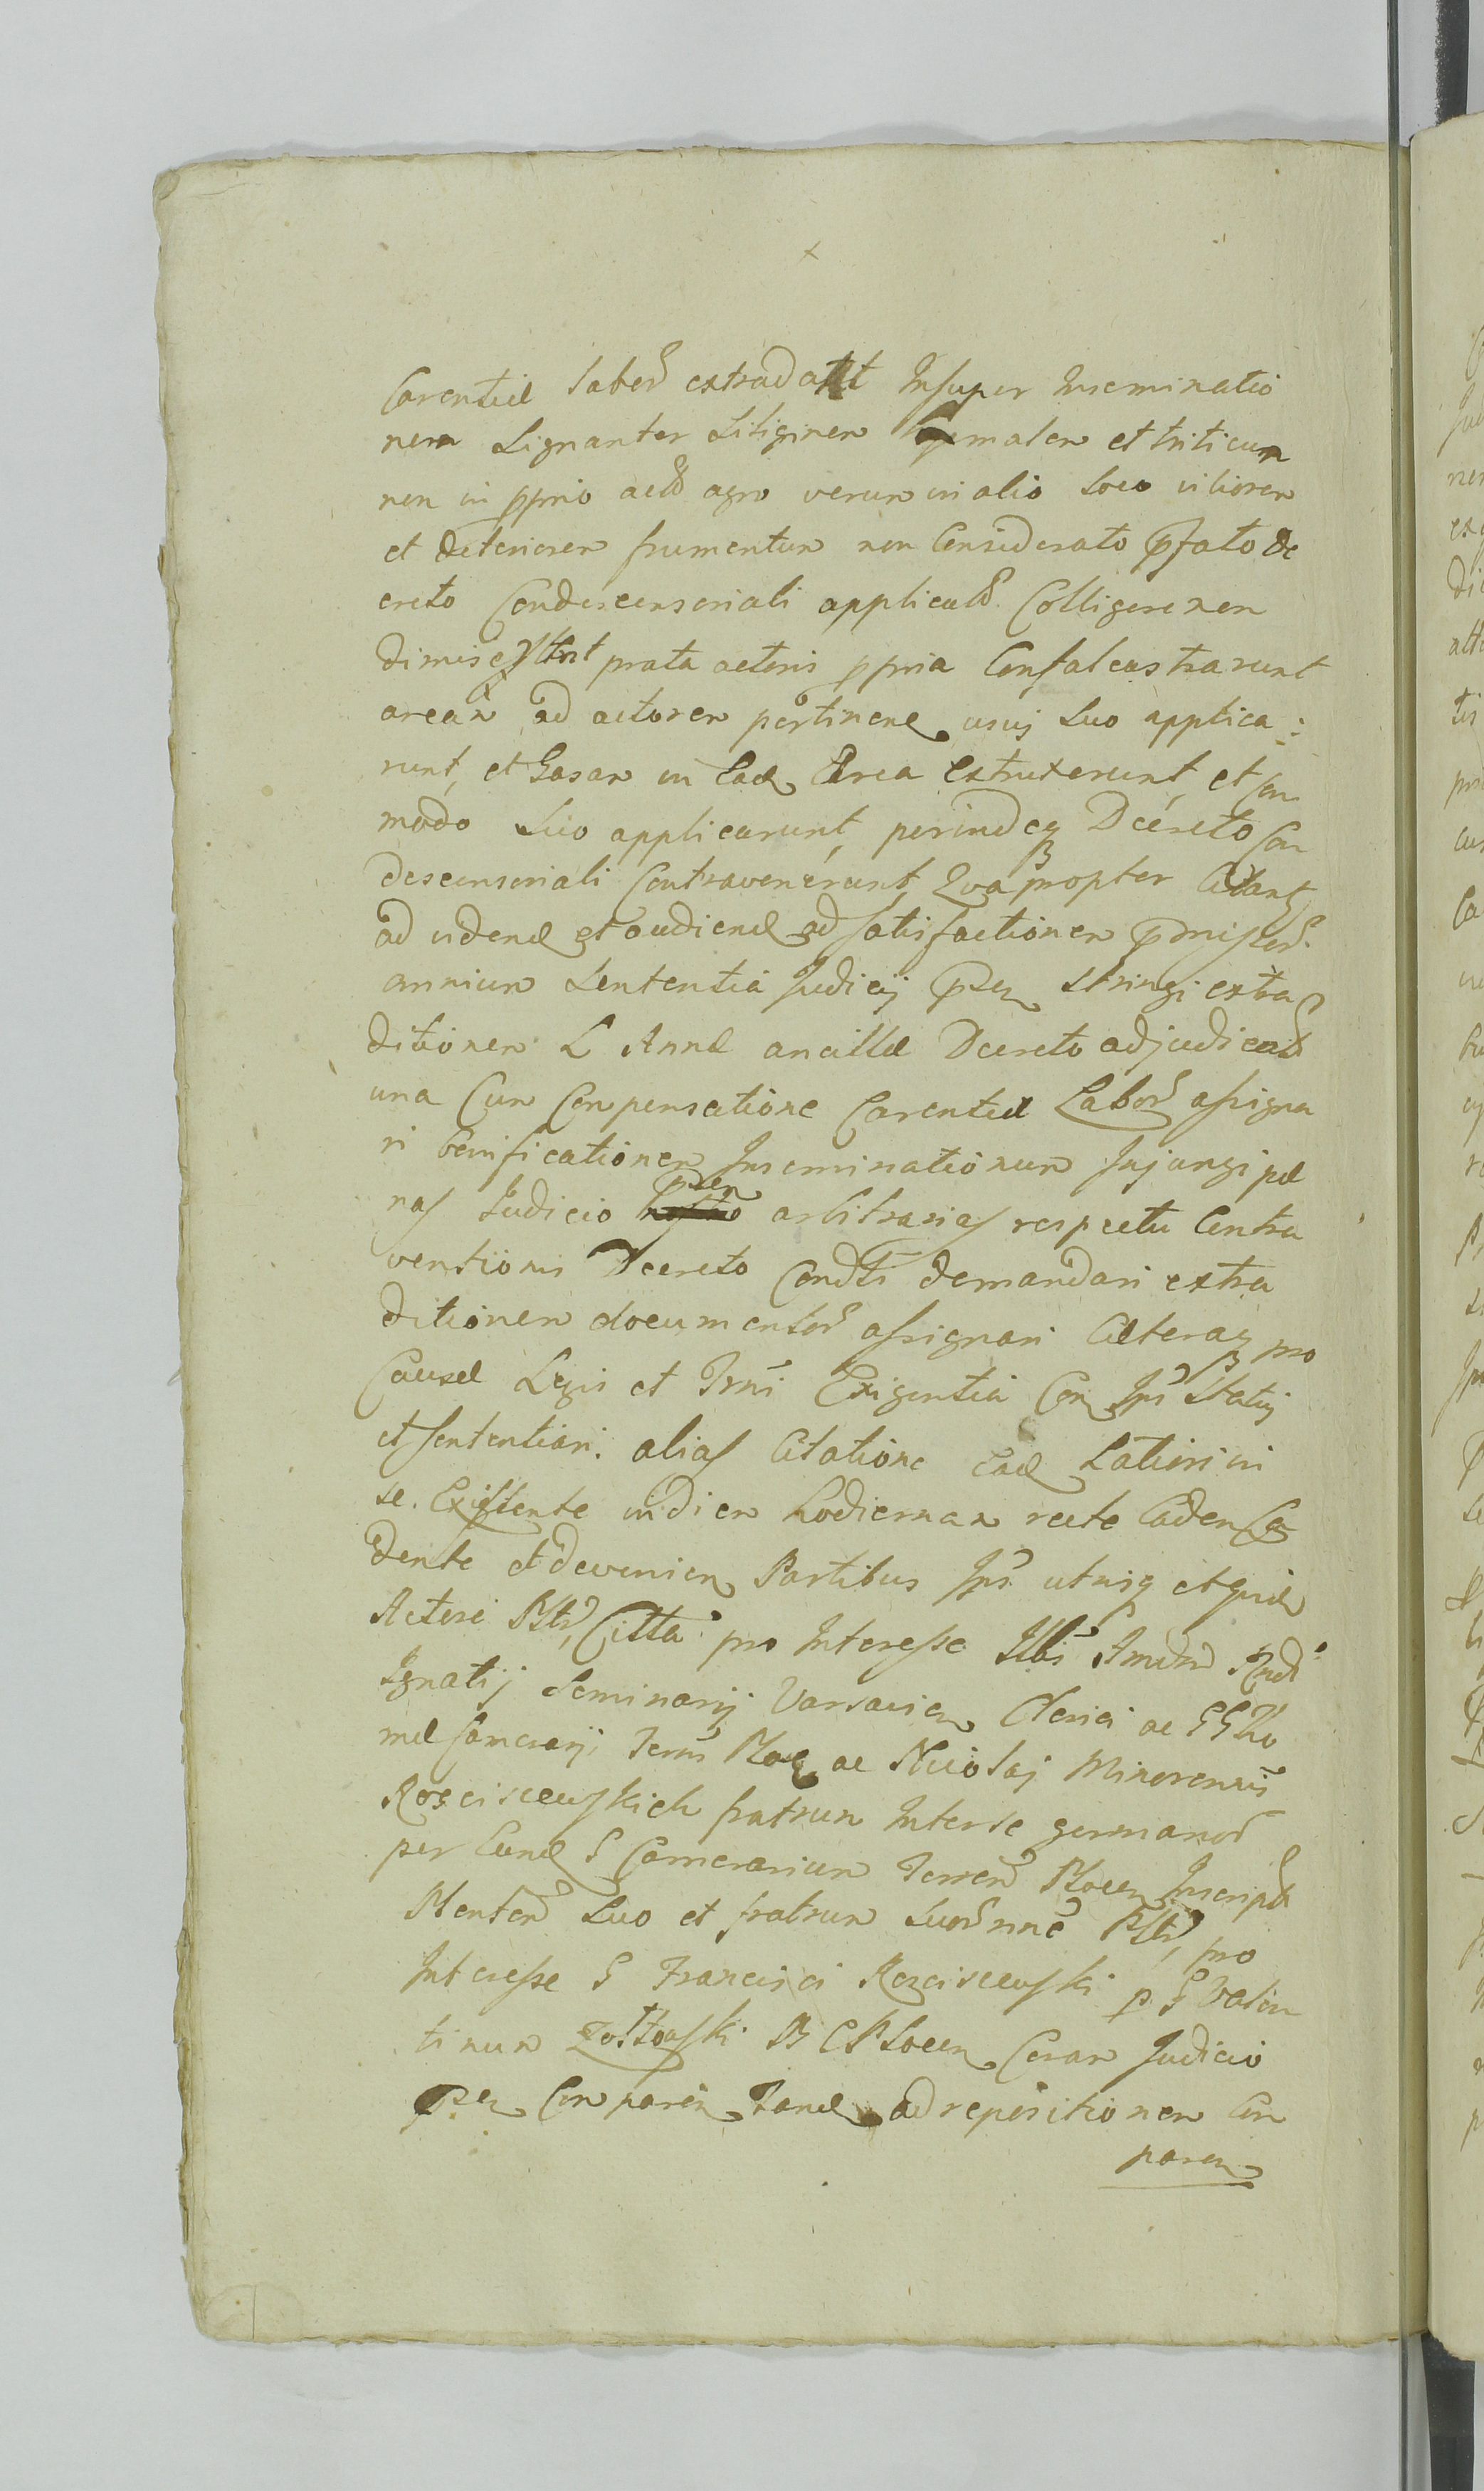 Carentiæ labor extradant Insuper Inseminatio
nem Signanter Siliginem hyemalem et triticum
non in pprio acto agro verum in alio loco viliorem
et deteriorem frumentum non Considerato Pfato De
creto Condescensoriali applicato Colligere non
dimiserunt prata actoris ppria Confalcastrarunt
aream ad actorem pertinen usuj Suo applica:
runt, et Casam in Ead Area Extruxerunt, et Com
modo Suo applicarunt, perindeq Decreto Con
descensoriali Contravenerunt, Quapropter Citant
ad vidend et audiend ad Satisfactionem
omnium Sententia Judicij Psen Stringi extra
ditionem L Annæ ancillæ Decreto adjudicat
una Cum Compensatione Carentiæ Labor assigna
ri bonificationem Inseminationum Injungi pæ
nas Judicio Psen arbitrarias respectu Contra
ventionis Decreto Condti demandari extra
ditionem documentor assignari Cæteraq pro
Causæ Legis et Trni Exigentia Con Ips Statuj
et sententiari. alias Citatione Ead Latiori in
se. Existente in diem hodiernam recte Caden Ca
dente et devenien Partibus Ips utrisq et quid
Actore Pstr, Citta pro Interesse Illris Amdm Rndi
Ignatij Seminarij Varsavien Clerici ac GG Tho
mæ Camerarij Terris Ploc ac Nicolaj Minorennis
Rosciscewskich fratrum Inter se germanor
per Eund G Camerarium Terren Plocen Inscript
Plenten Suo et fratrum Suor nne Pstr, pro
Interesse G Francisci Rosciscewski p G Valen
tinum Zołtowski B C Plocen Coram Judicio
Psen Comparen Tand ad repositionem Com
paren